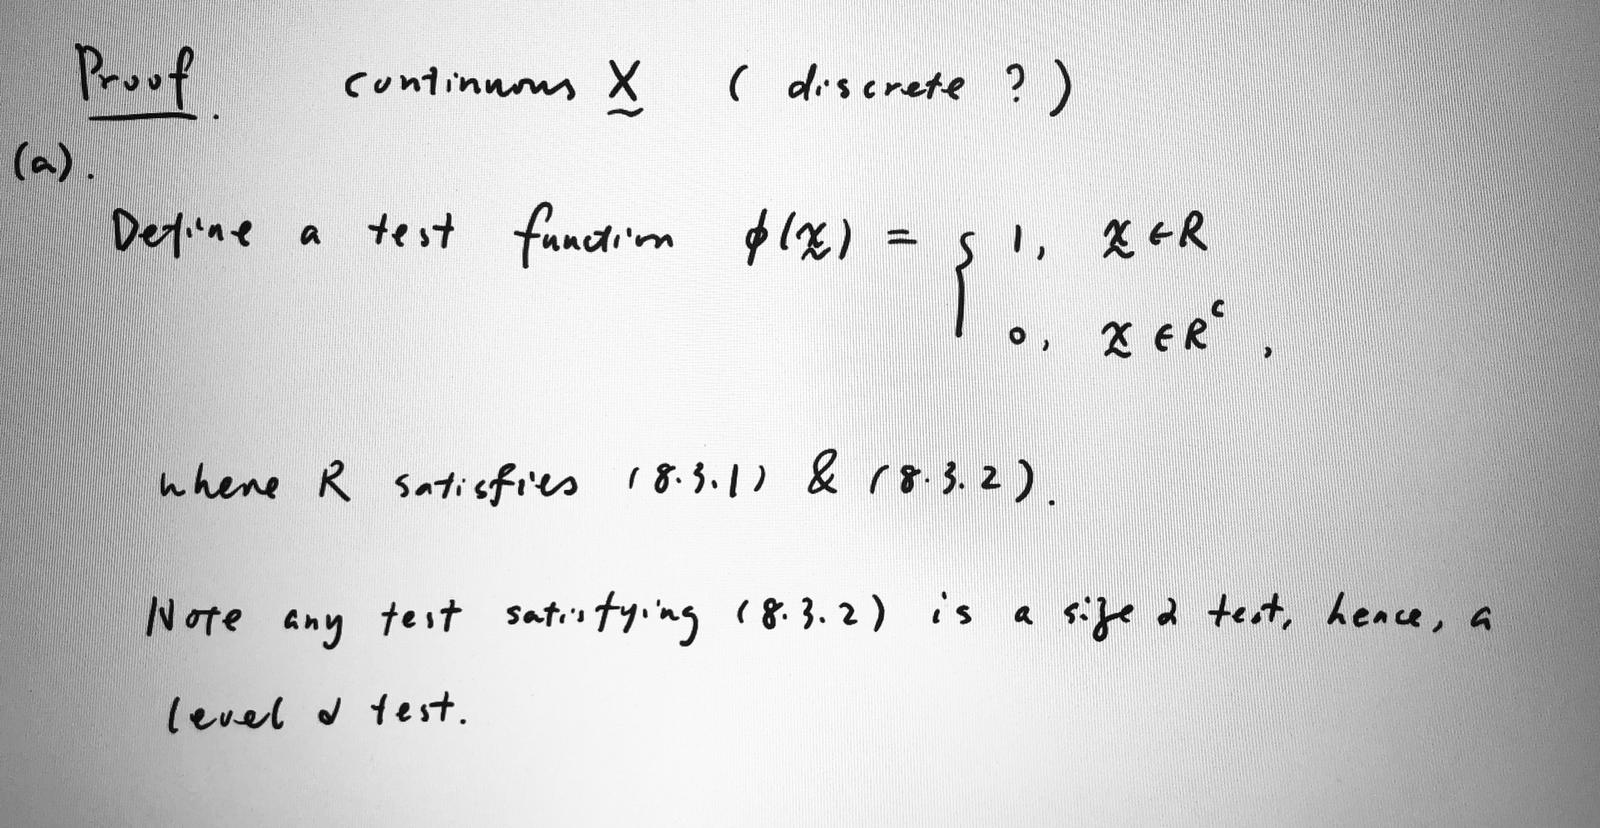 Proof. continuous X̰ ( discrete ? )
(a).
Define a test function ϕ(x̰) = { 1, x̰ ∈ R
0, x̰ ∈ Rᶜ ,
where R satisfies (8.3.1) & (8.3.2).
Note any test satisfying (8.3.2) is a size α test, hence, a
level α test.